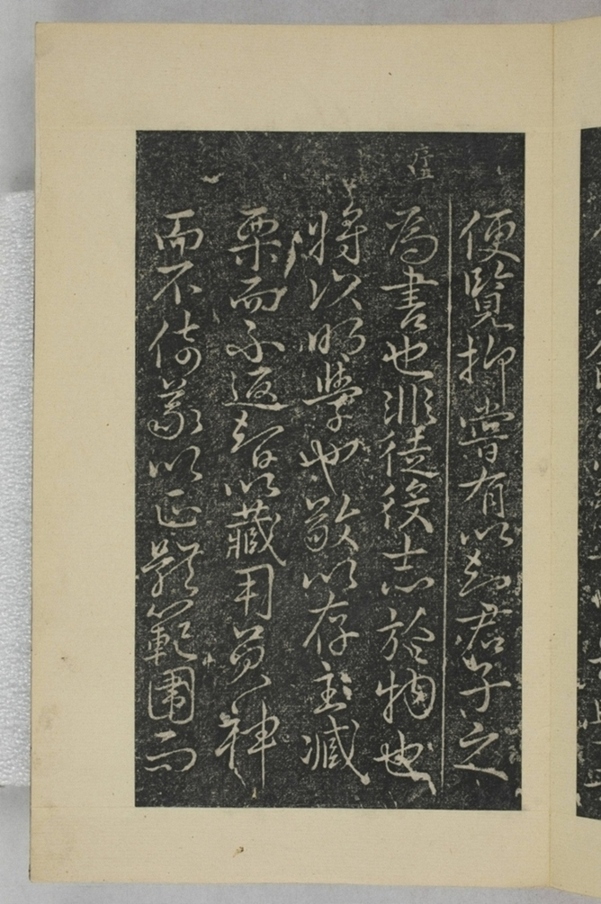 便覽抑嘗有以知君子之
為書也非徒役志於物也
將以明學也敬以存主減
栗而不返智以藏用員神
而不倚義以正
範圍而